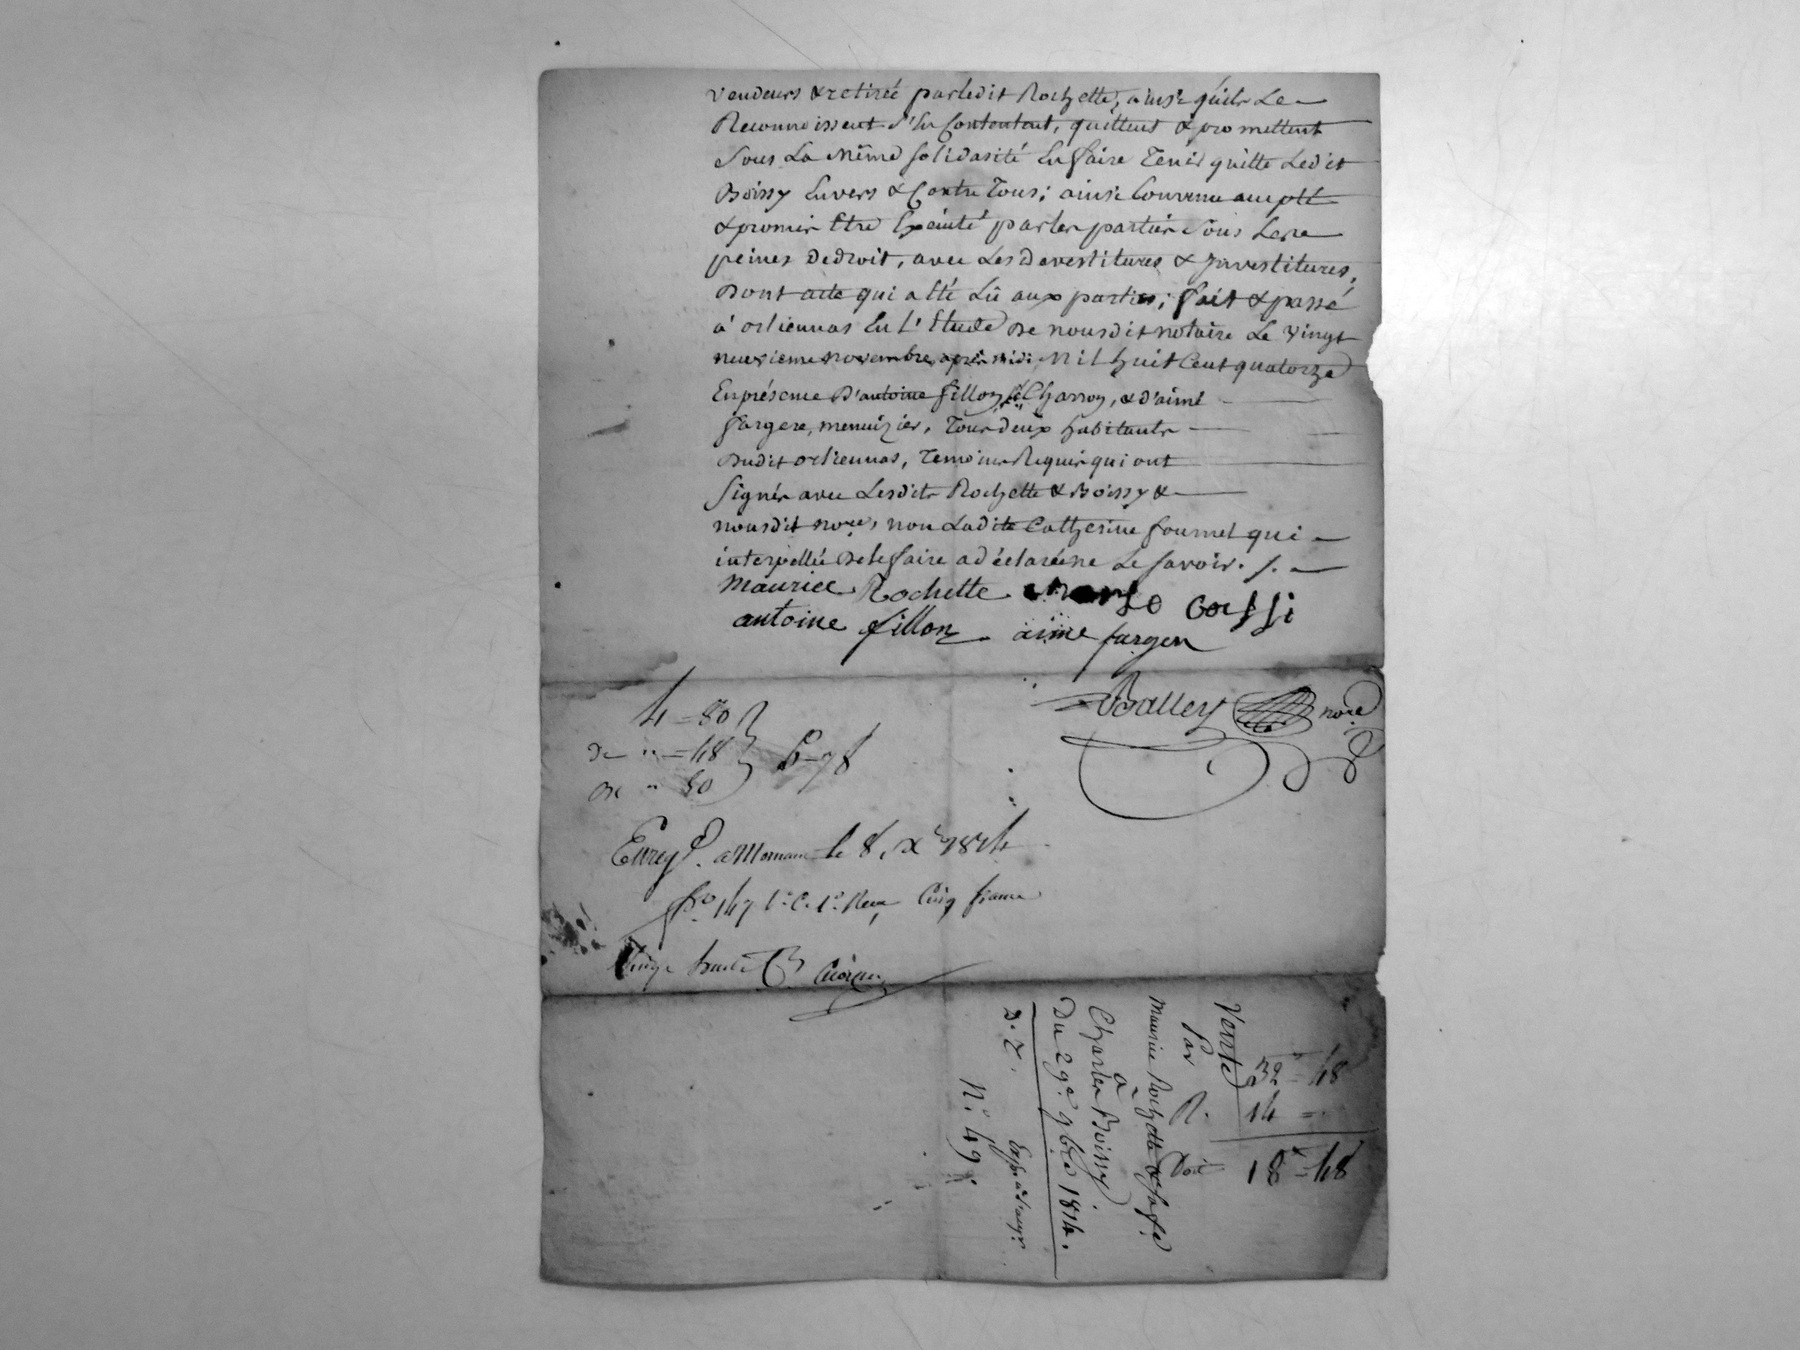 vendeurs & retirée par ledit Rochette, ainsi qu'ils Le
Reconnoissent s'en Contentent, quittent & promettent
Sous La Même solidarité En faire Tenir quitte Ledit
Boissy Envers & Contre Tous; ainsi Convenu accepté
& promis Etre Exécuté par les parties Sous Les
peines de droit, avec Les Devestitures & Investitures,
Dont acte qui a été Lû aux parties; fait & passé
à orliennas En L'Etude De nousdit notaire Le vingt
neuvieme novembre après midi Mil huit Cent quatorze
En présence D'antoine fillon, Charron, & d'aimé
fargere, menuizier, Tous deux habitants
Dudit orliennas, Temoins Requis qui ont
Signés avec Lesdits Rochette & Boissy &
nousdit nore, non Ladite Catherine fournel qui
interpellée De le faire a déclaré ne Le savoir ./.
Maurice Rochette
antoine fillon aime fargere
Balley nore
4 = 80
De " = 48
" 50
6 - 78
Enregé. a Mornant le 8. Xe 1814
fo 147 Ro. C. 1e Reçu Cinq francs
Vingt huit C.
Vente
Par
Maurice Rochette & sa fe
à
Charles Boissy
Du 29e. 9bre 1814.
D. T.
N. 49
32 = 48
R. 14 = "
Doit 18 = 48